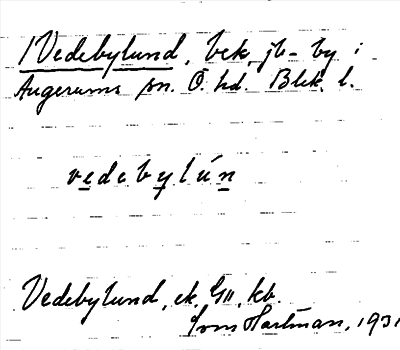 1 Vedebylund, bek. jb-by i
Augerums sn. Ö. hd. Blek. l.
vedebylún
Vedebylund, ek. GII, kb.
Hartman, 1931